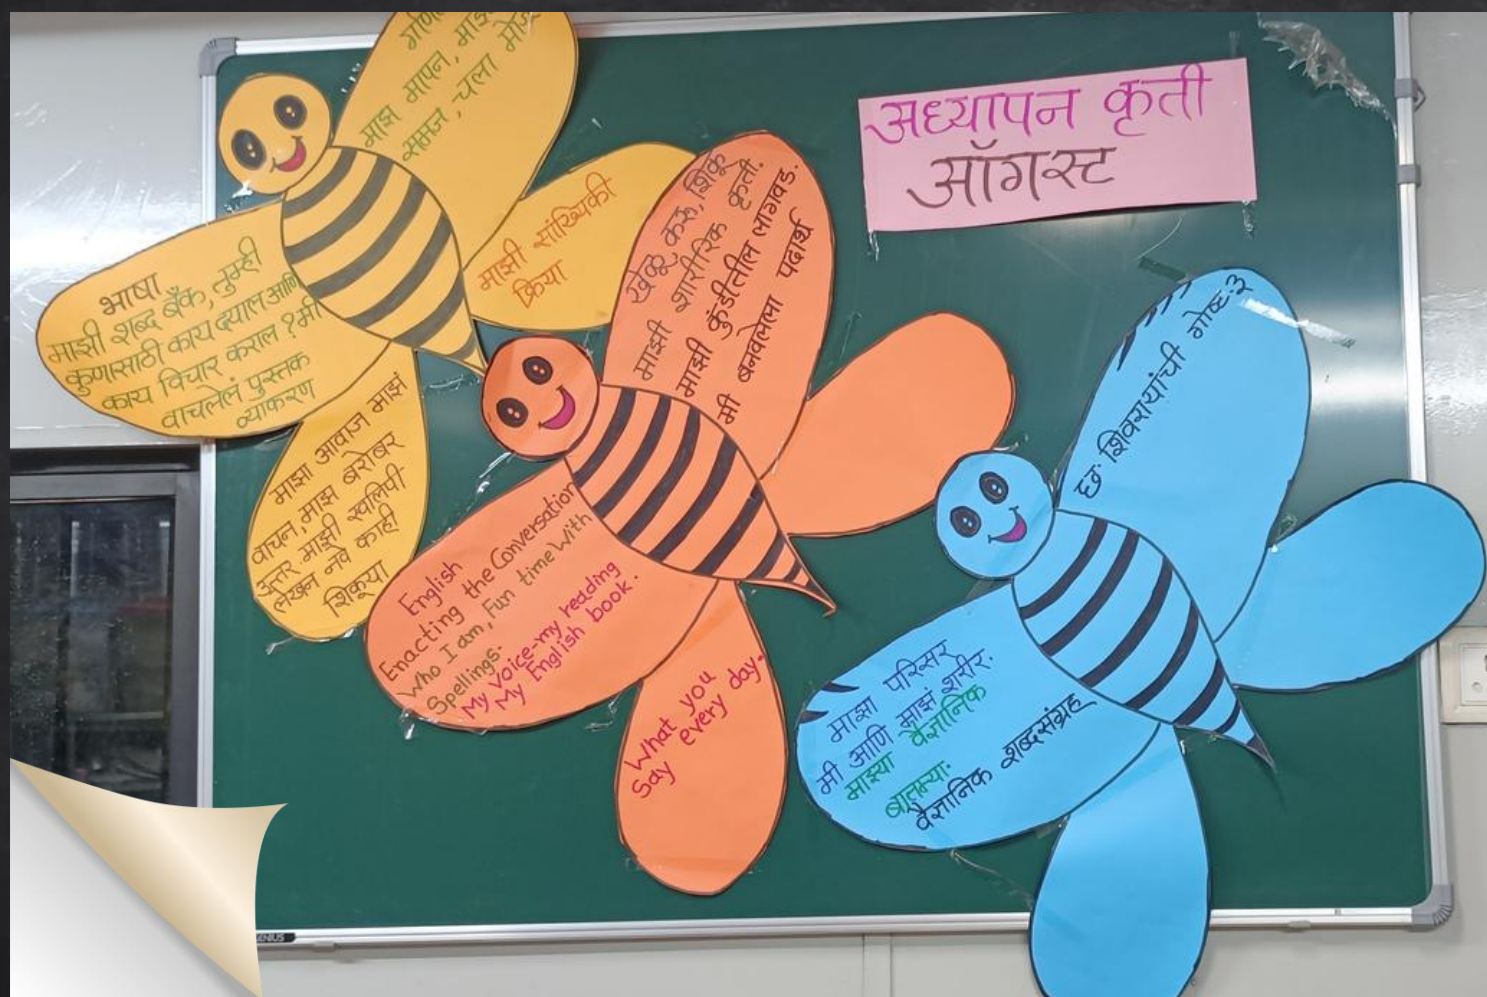 अध्यापन कृती
ऑगस्ट
माझं मापन,
समज, चला
माझी सांख्यिकी
क्रिया
भाषा
माझी शब्द बँक, तुम्ही
कुणासाठी काय द्याल आणि
काय विचार कराल ? मी
वाचलेलं पुस्तक
व्याकरण
माझा आवाज माझं
वाचन, माझं बरोबर
उत्तर. माझी स्वलिपी-
लेखन नवं काही
शिकूया
खेळू, करू, शिकू
माझी शारीरिक कृती.
माझी कुंडीतील लागवड.
मी बनवलेला पदार्थ
English
Enacting the Conversation
Who I am, Fun time With
Spellings.
My voice-my reading
My English book.
What you
Say every day.
छ. शिवरायांची गोष्ट:३
माझा परिसर
मी आणि माझं शरीर.
माझ्या वैज्ञानिक
बातम्या.
वैज्ञानिक शब्दसंग्रह